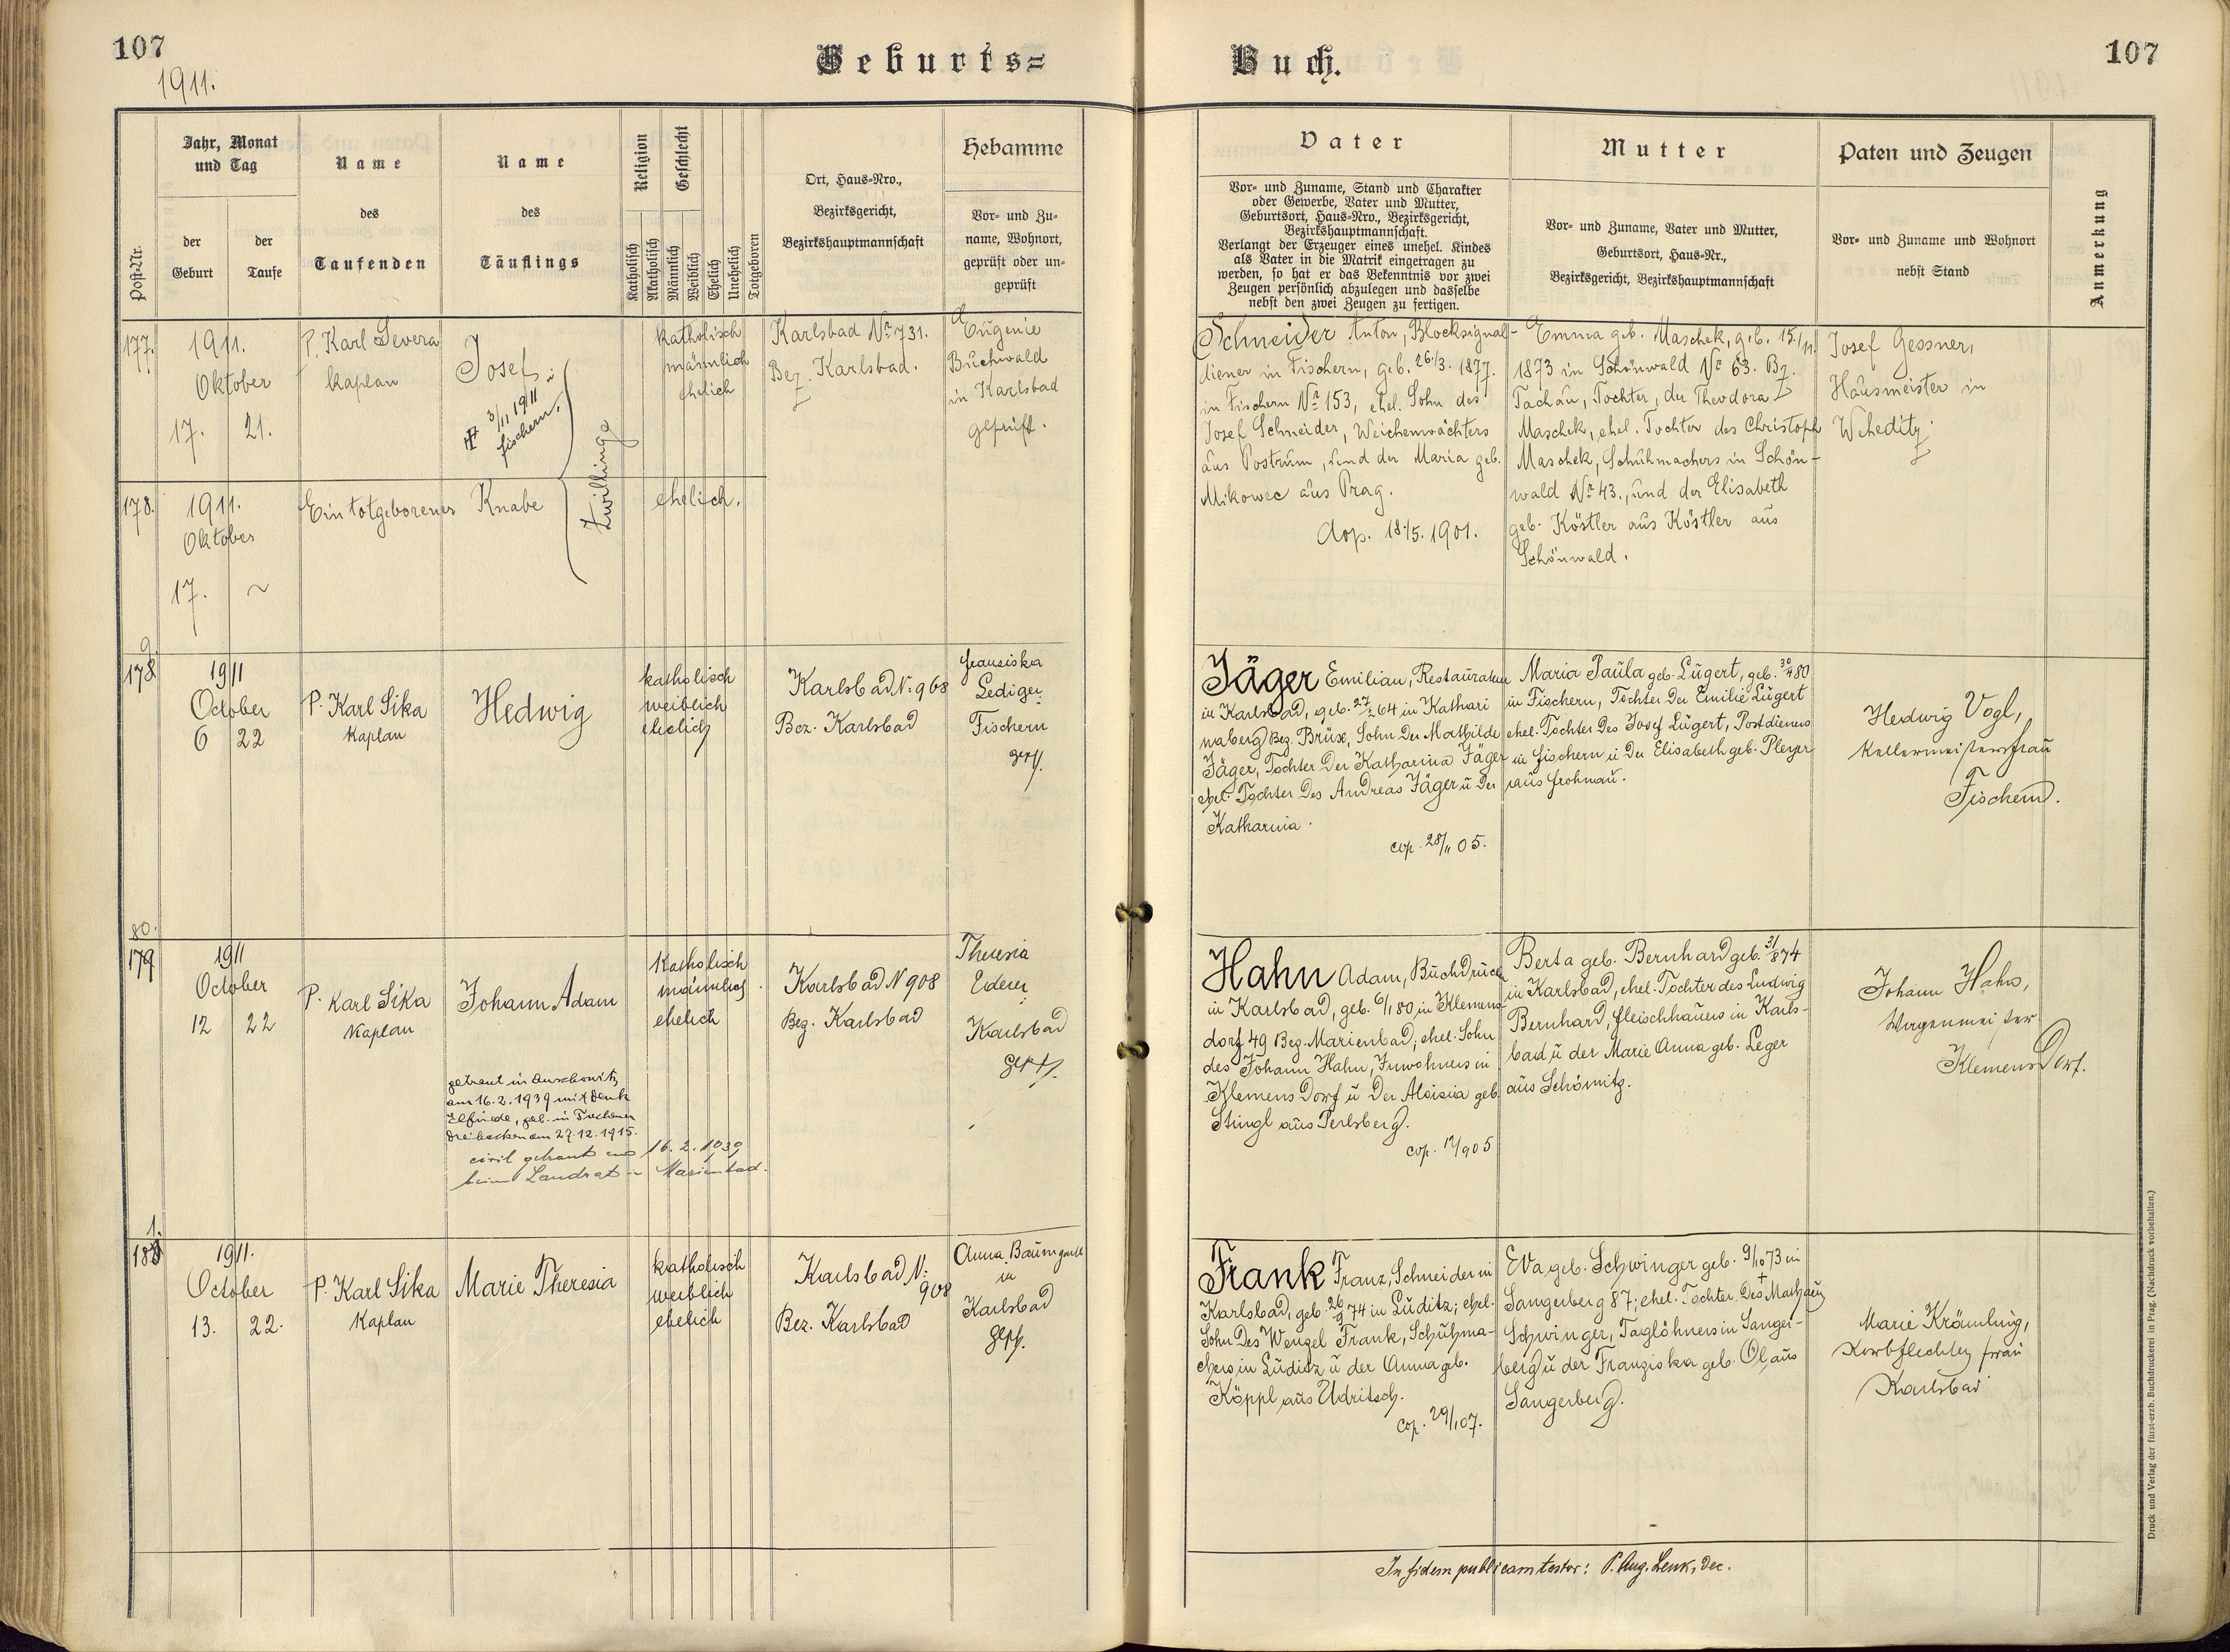 107
1911.
Geburts=
Buch.
107
Post-Nr.
Jahr, Monat
und Tag
der
Geburt
der
Taufe
Name
des
Taufenden
Name
des
Täuflings
Religion
Geschlecht
Katholisch
Akatholisch
Männlich
Weiblich
Ehelich
Unehelich
Totgeboren
Ort, Haus-Nro.,
Bezirksgericht,
Bezirkshauptmannschaft
Hebamme
Vor- und Zu-
name, Wohnort,
geprüft oder un-
geprüft
Vater
Vor- und Zuname, Stand und Charakter
oder Gewerbe, Vater und Mutter,
Geburtsort, Haus-Nro., Bezirksgericht,
Bezirkshauptmannschaft.
Verlangt der Erzeuger eines unehel. Kindes
als Vater in die Matrik eingetragen zu
werden, so hat er das Bekenntnis vor zwei
Zeugen persönlich abzulegen und dasselbe
nebst den zwei Zeugen zu fertigen.
Mutter
Vor- und Zuname, Vater und Mutter,
Geburtsort, Haus-Nr.,
Bezirksgericht, Bezirkshauptmannschaft
Paten und Zeugen
Vor- und Zuname und Wohnort
nebst Stand
Anmerkung
177.
1911.
Oktober
17. 21.
P. Karl Severa
Kaplan
Josef
3/11 1911
Fischern.
Zwillinge
katholisch
männlich
ehelich
Karlsbad Nr 731.
Bez. Karlsbad.
Eugenie
Buchwald
in Karlsbad
geprüft.
Schneider Anton, Blocksignal-
diener in Fischern, geb. 26./3. 1877.
in Fischern Nr 153, ehel. Sohn des
Josef Schneider, Weichenwächters
aus Postrum, und der Maria geb.
Mikowec aus Prag.
Cop. 18./5. 1901.
Emma geb. Maschek, geb. 15./11.
1873 in Schönwald Nr 63. Bz.
Tachau, Tochter, der Theodora
Maschek, ehel. Tochter des Christoph
Maschek, Schuhmachers in Schön-
wald Nr 43., und der Elisabeth
geb. Köstler aus Köstler aus
Schönwald.
Josef Gessner,
Hausmeister in
Weheditz.
178.
1911.
Oktober
17. ~
Ein totgeborener Knabe
ehelich.
9.
178
1911
October
6 22
P. Karl Sika
Kaplan
Hedwig
katholisch
weiblich
ehelich
Karlsbad N. 968
Bez. Karlsbad
Franziska
Lediger
Fischern
gepf.
Jäger Emilian, Restaurateur
in Karlsbad, geb. 27/2 64 in Kathari
naberg Bez. Brüx, Sohn Der Mathilde
Jäger, Tochter Der Katharina Jäger
ehel. Tochter Des Andreas Jäger u Der
Katharina.
cop. 28/11 05.
Maria Paula geb. Lugert, geb. 30/4 80
in Fischern, Tochter Der Emilie Lugert
ehel. Tochter Des Josef Lugert, Postdieners
in Fischern u Der Elisabeth geb. Pleyer
aus Frohnau.
Hedwig Vogl,
Kellermeistersfrau
Fischern.
80.
179
1911
October
12 22
P. Karl Sika
Kaplan
Johann Adam
getraut in Auschowitz
am 16.2.1939 mit Denk
Elfriede, geb. in
Dreihacken am 27.12.1915.
civil getraut am 16.2.1939
beim Landrat in Marienbad.
Katholisch
männlich
ehelich
Karlsbad N 908
Bez. Karlsbad
Theresia
Ederer
Karlsbad
gepf.
Hahn Adam, Buchdrucker
in Karlsbad, geb. 6/1 80 in Klemens-
dorf 49 Bez. Marienbad, ehel. Sohn
des Johann Hahn, Inwohners in
Klemens Dorf u Der Aloisia geb.
Stingl aus Perlsberg.
cop. 12/9 05
Berta geb. Bernhard geb. 31/8 74
in Karlsbad, ehel. Tochter des Ludwig
Bernhard, Fleischhauers in Karls-
bad u der Marie Anna geb. Leger
aus Schömitz.
Johann Hahn,
Wagenmeister
KlemensDorf.
1.
180
1911.
October
13. 22.
P. Karl Sika
Kaplan
Marie Theresia
katholisch
weiblich
ehelich
Karlsbad N:
908
Bez. Karlsbad
Anna Baumgartl
in
Karlsbad
gepf.
Frank Franz, Schneider in
Karlsbad, geb. 26/9 74 in Luditz; ehel.
Sohn Des Wenzel Frank, Schuhma-
chers in Luditz u der Anna geb.
Köppl aus Udritsch.
cop. 29/1 07.
Eva geb. Schwinger geb. 9/10 73 in
Sangerberg 87; ehel. Tochter Des † Mathäus
Schwinger, Taglöhners in Sanger-
berg u der Franziska geb. Ol aus
Sangerberg.
Marie Krämling,
Korbflechters frau
Karlsbad
In fidem publicam testor: P. Aug. Lenk, Dec.
Druck und Verlag der fürst-erzb. Buchdruckerei in Prag. (Nachdruck vorbehalten.)